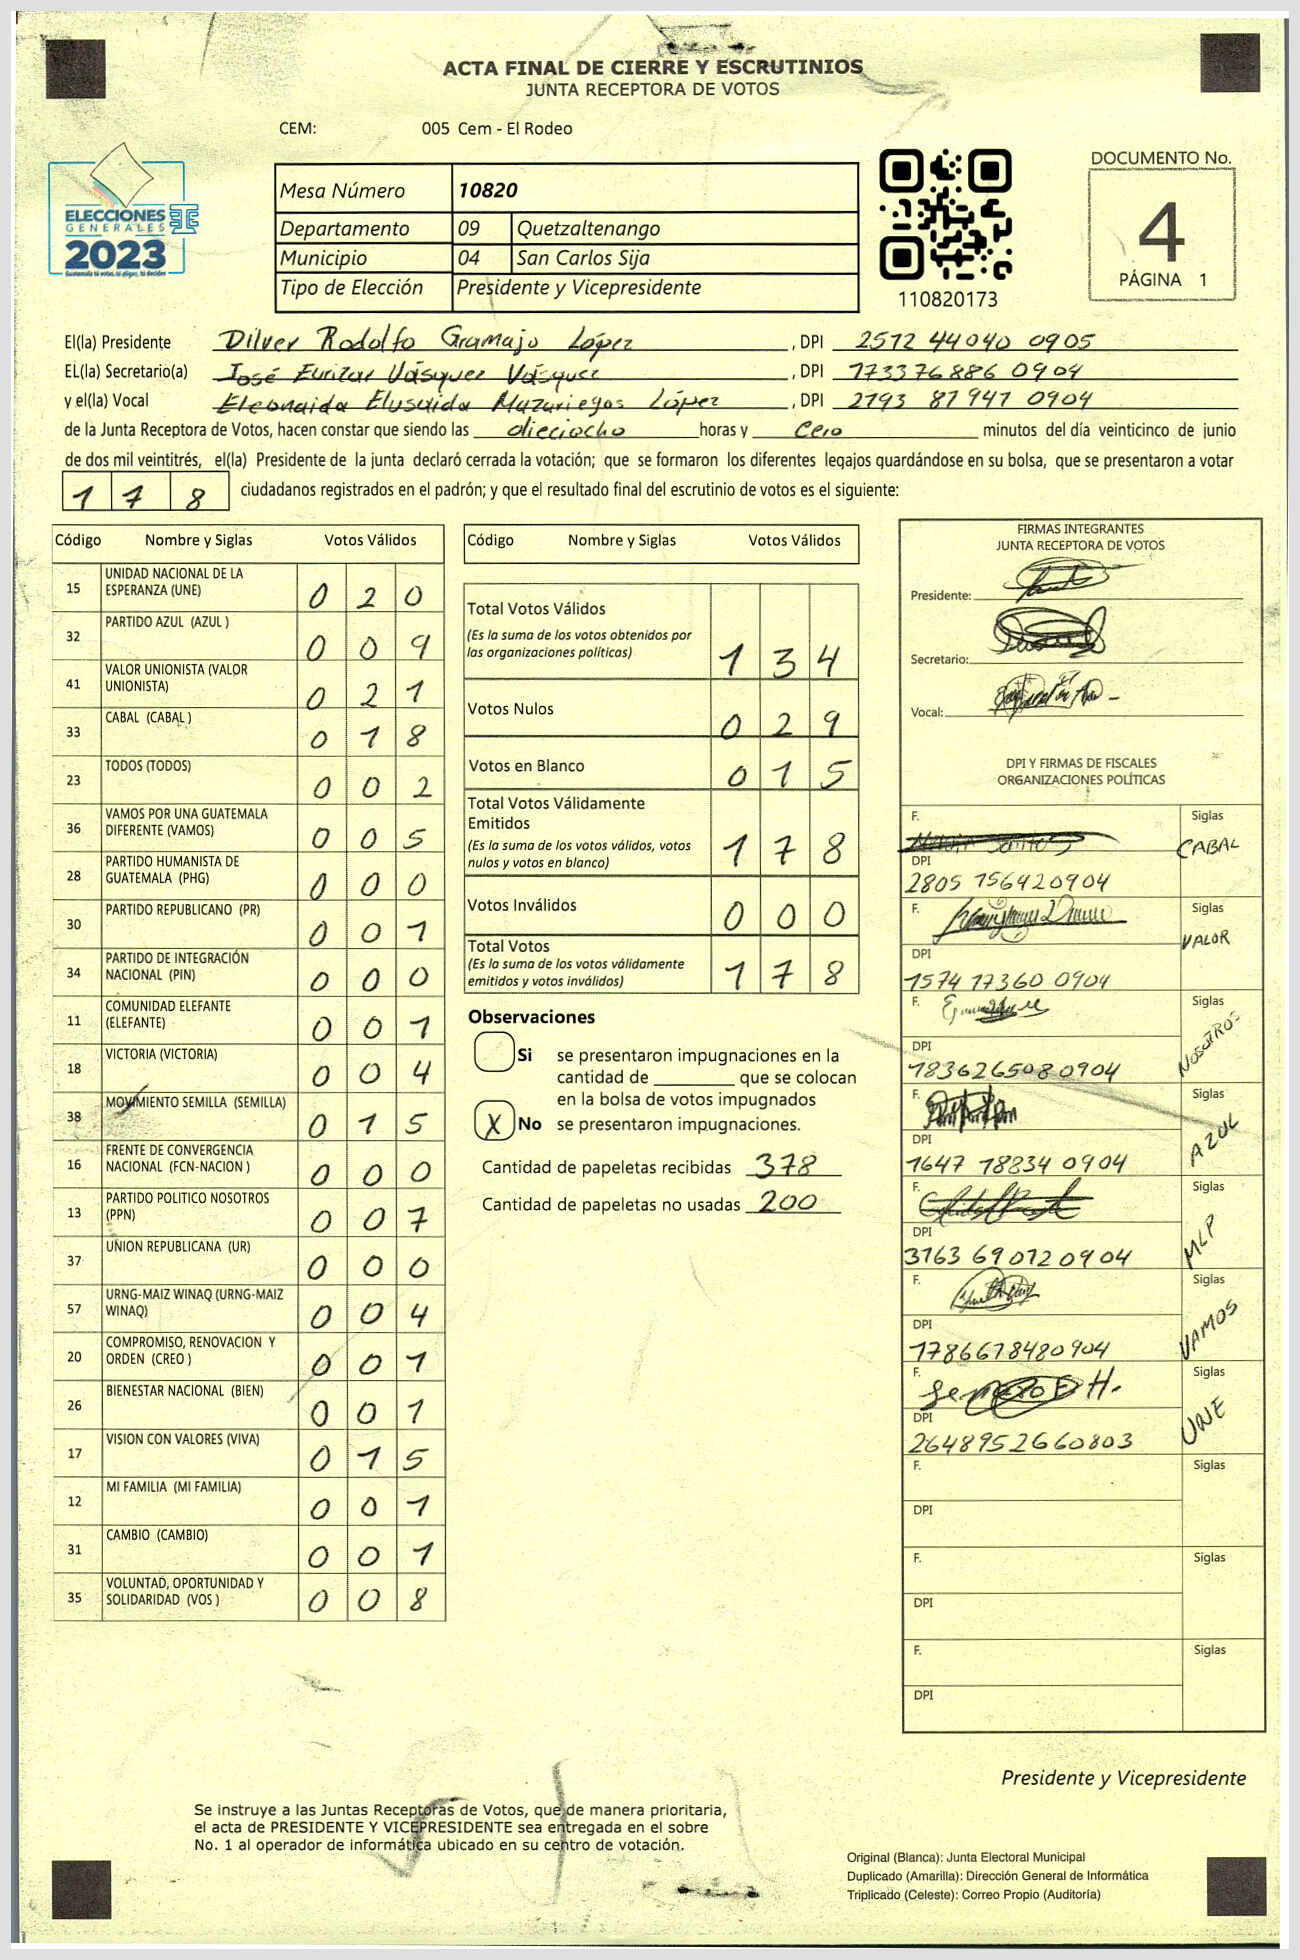 ACTA FINAL DE CIERRE Y ESCRUTINIOS
JUNTA RECEPTORA DE VOTOS
CEM: 005 Cem - El Rodeo
ELECCIONES
GENERALES
2023
Guatemala tú votas, tú eliges, tú decides
Mesa Número 10820
Departamento 09 Quetzaltenango
Municipio 04 San Carlos Sija
Tipo de Elección Presidente y Vicepresidente
110820173
DOCUMENTO No.
4
PÁGINA 1
El(la) Presidente Dilver Rodolfo Gramajo López, DPI 2512 44040 0905
EL(la) Secretario(a) José Eurizar Vásquez Vásquez, DPI 173376886 0904
y el(la) Vocal Eleonaida Elusvida Mazariegos López, DPI 2793 87947 0904
de la Junta Receptora de Votos, hacen constar que siendo las dieciocho horas y cero minutos del día veinticinco de junio
de dos mil veintitrés, el(la) Presidente de la junta declaró cerrada la votación; que se formaron los diferentes legajos guardándose en su bolsa, que se presentaron a votar
1 7 8 ciudadanos registrados en el padrón; y que el resultado final del escrutinio de votos es el siguiente:
Código Nombre y Siglas Votos Válidos
15 UNIDAD NACIONAL DE LA ESPERANZA (UNE) 0 2 0
32 PARTIDO AZUL (AZUL ) 0 0 9
41 VALOR UNIONISTA (VALOR UNIONISTA) 0 2 1
33 CABAL (CABAL ) 0 1 8
23 TODOS (TODOS) 0 0 2
36 VAMOS POR UNA GUATEMALA DIFERENTE (VAMOS) 0 0 5
28 PARTIDO HUMANISTA DE GUATEMALA (PHG) 0 0 0
30 PARTIDO REPUBLICANO (PR) 0 0 1
34 PARTIDO DE INTEGRACIÓN NACIONAL (PIN) 0 0 0
11 COMUNIDAD ELEFANTE (ELEFANTE) 0 0 1
18 VICTORIA (VICTORIA) 0 0 4
38 MOVIMIENTO SEMILLA (SEMILLA) 0 1 5
16 FRENTE DE CONVERGENCIA NACIONAL (FCN-NACION ) 0 0 0
13 PARTIDO POLITICO NOSOTROS (PPN) 0 0 7
37 UNION REPUBLICANA (UR) 0 0 0
57 URNG-MAIZ WINAQ (URNG-MAIZ WINAQ) 0 0 4
20 COMPROMISO, RENOVACION Y ORDEN (CREO ) 0 0 1
26 BIENESTAR NACIONAL (BIEN) 0 0 1
17 VISION CON VALORES (VIVA) 0 1 5
12 MI FAMILIA (MI FAMILIA) 0 0 1
31 CAMBIO (CAMBIO) 0 0 1
35 VOLUNTAD, OPORTUNIDAD Y SOLIDARIDAD (VOS ) 0 0 8
Código Nombre y Siglas Votos Válidos
Total Votos Válidos
(Es la suma de los votos obtenidos por
las organizaciones políticas) 1 3 4
Votos Nulos 0 2 9
Votos en Blanco 0 1 5
Total Votos Válidamente
Emitidos
(Es la suma de los votos válidos, votos
nulos y votos en blanco) 1 7 8
Votos Inválidos 0 0 0
Total Votos
(Es la suma de los votos válidamente
emitidos y votos inválidos) 1 7 8
Observaciones
Si se presentaron impugnaciones en la
cantidad de ________ que se colocan
en la bolsa de votos impugnados
X No se presentaron impugnaciones.
Cantidad de papeletas recibidas 378
Cantidad de papeletas no usadas 200
FIRMAS INTEGRANTES
JUNTA RECEPTORA DE VOTOS
Presidente:
Secretario:
Vocal:
DPI Y FIRMAS DE FISCALES
ORGANIZACIONES POLÍTICAS
F. Siglas
CABAL
DPI
2805 156420904
F. Siglas
VALOR
DPI
1574 17360 0904
F. Siglas
NOSOTROS
DPI
1836265080904
F. Siglas
AZUL
DPI
1647 18834 0904
F. Siglas
MLP
DPI
3163 69012 0904
F. Siglas
VAMOS
DPI
1786678480904
F. Siglas
UNE
DPI
2648952660803
F. Siglas
DPI
F. Siglas
DPI
F. Siglas
DPI
Presidente y Vicepresidente
Se instruye a las Juntas Receptoras de Votos, que de manera prioritaria,
el acta de PRESIDENTE Y VICEPRESIDENTE sea entregada en el sobre
No. 1 al operador de informática ubicado en su centro de votación.
Original (Blanca): Junta Electoral Municipal
Duplicado (Amarilla): Dirección General de Informática
Triplicado (Celeste): Correo Propio (Auditoría)